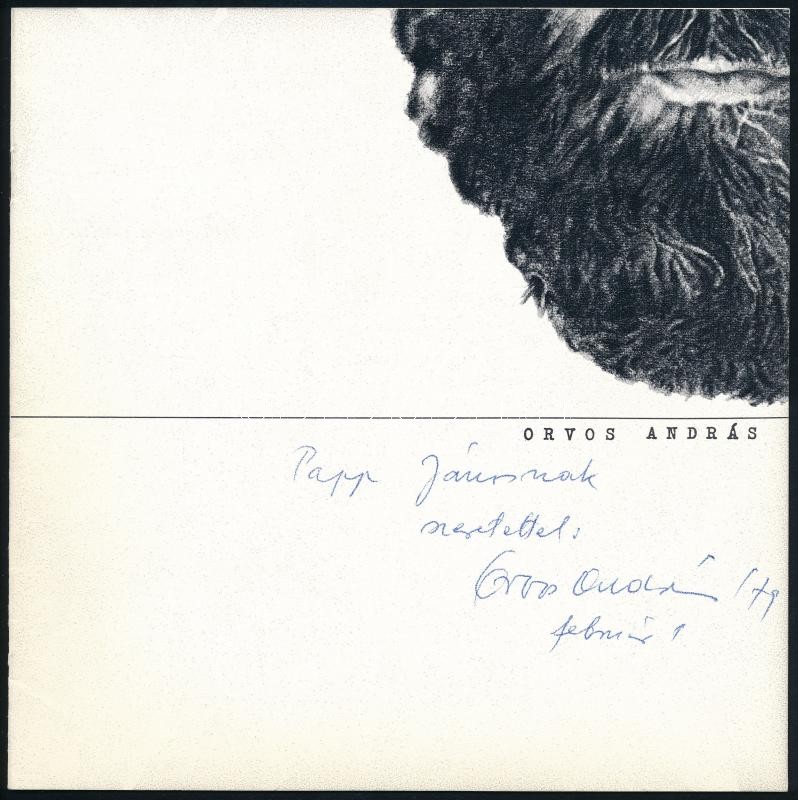 ORVOS ANDRÁS
Papp Jánosnak
szeretettel:
Orvos András
február 1